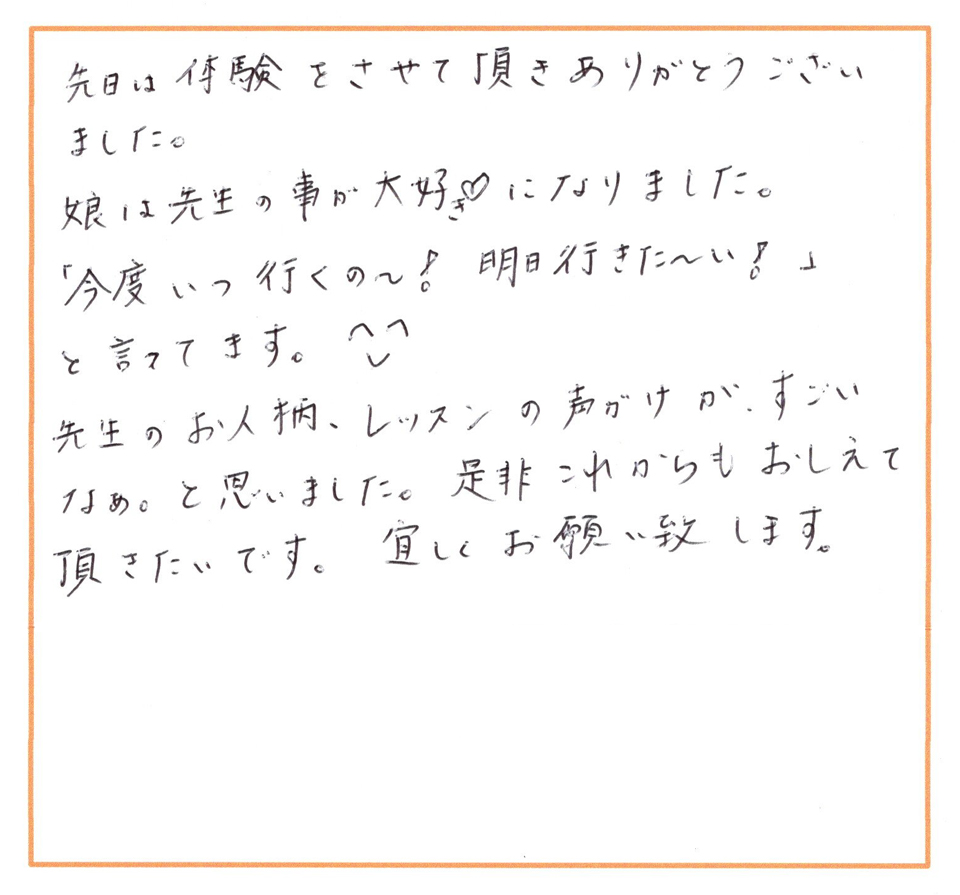 先日は体験をさせて頂きありがとうござい
ました。
娘は先生の事が大好き♡になりました。
「今度いつ行くの〜! 明日行きた〜い!」
と言ってきます。^^
先生のお人柄、レッスンの声がけが、すごい
なぁ。と思いました。是非これからもおしえて
頂きたいです。宜しくお願い致します。